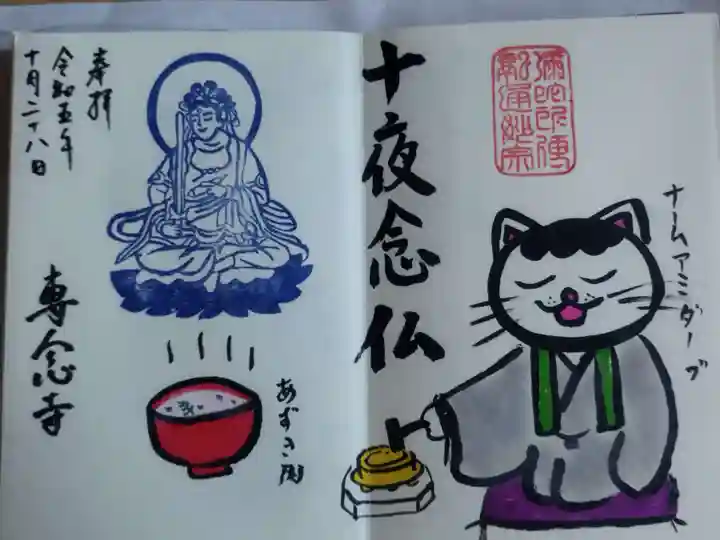 十夜念仏
ナームアミダーブ
奉拝
令和五年
十月二十八日
専念寺
あずき粥